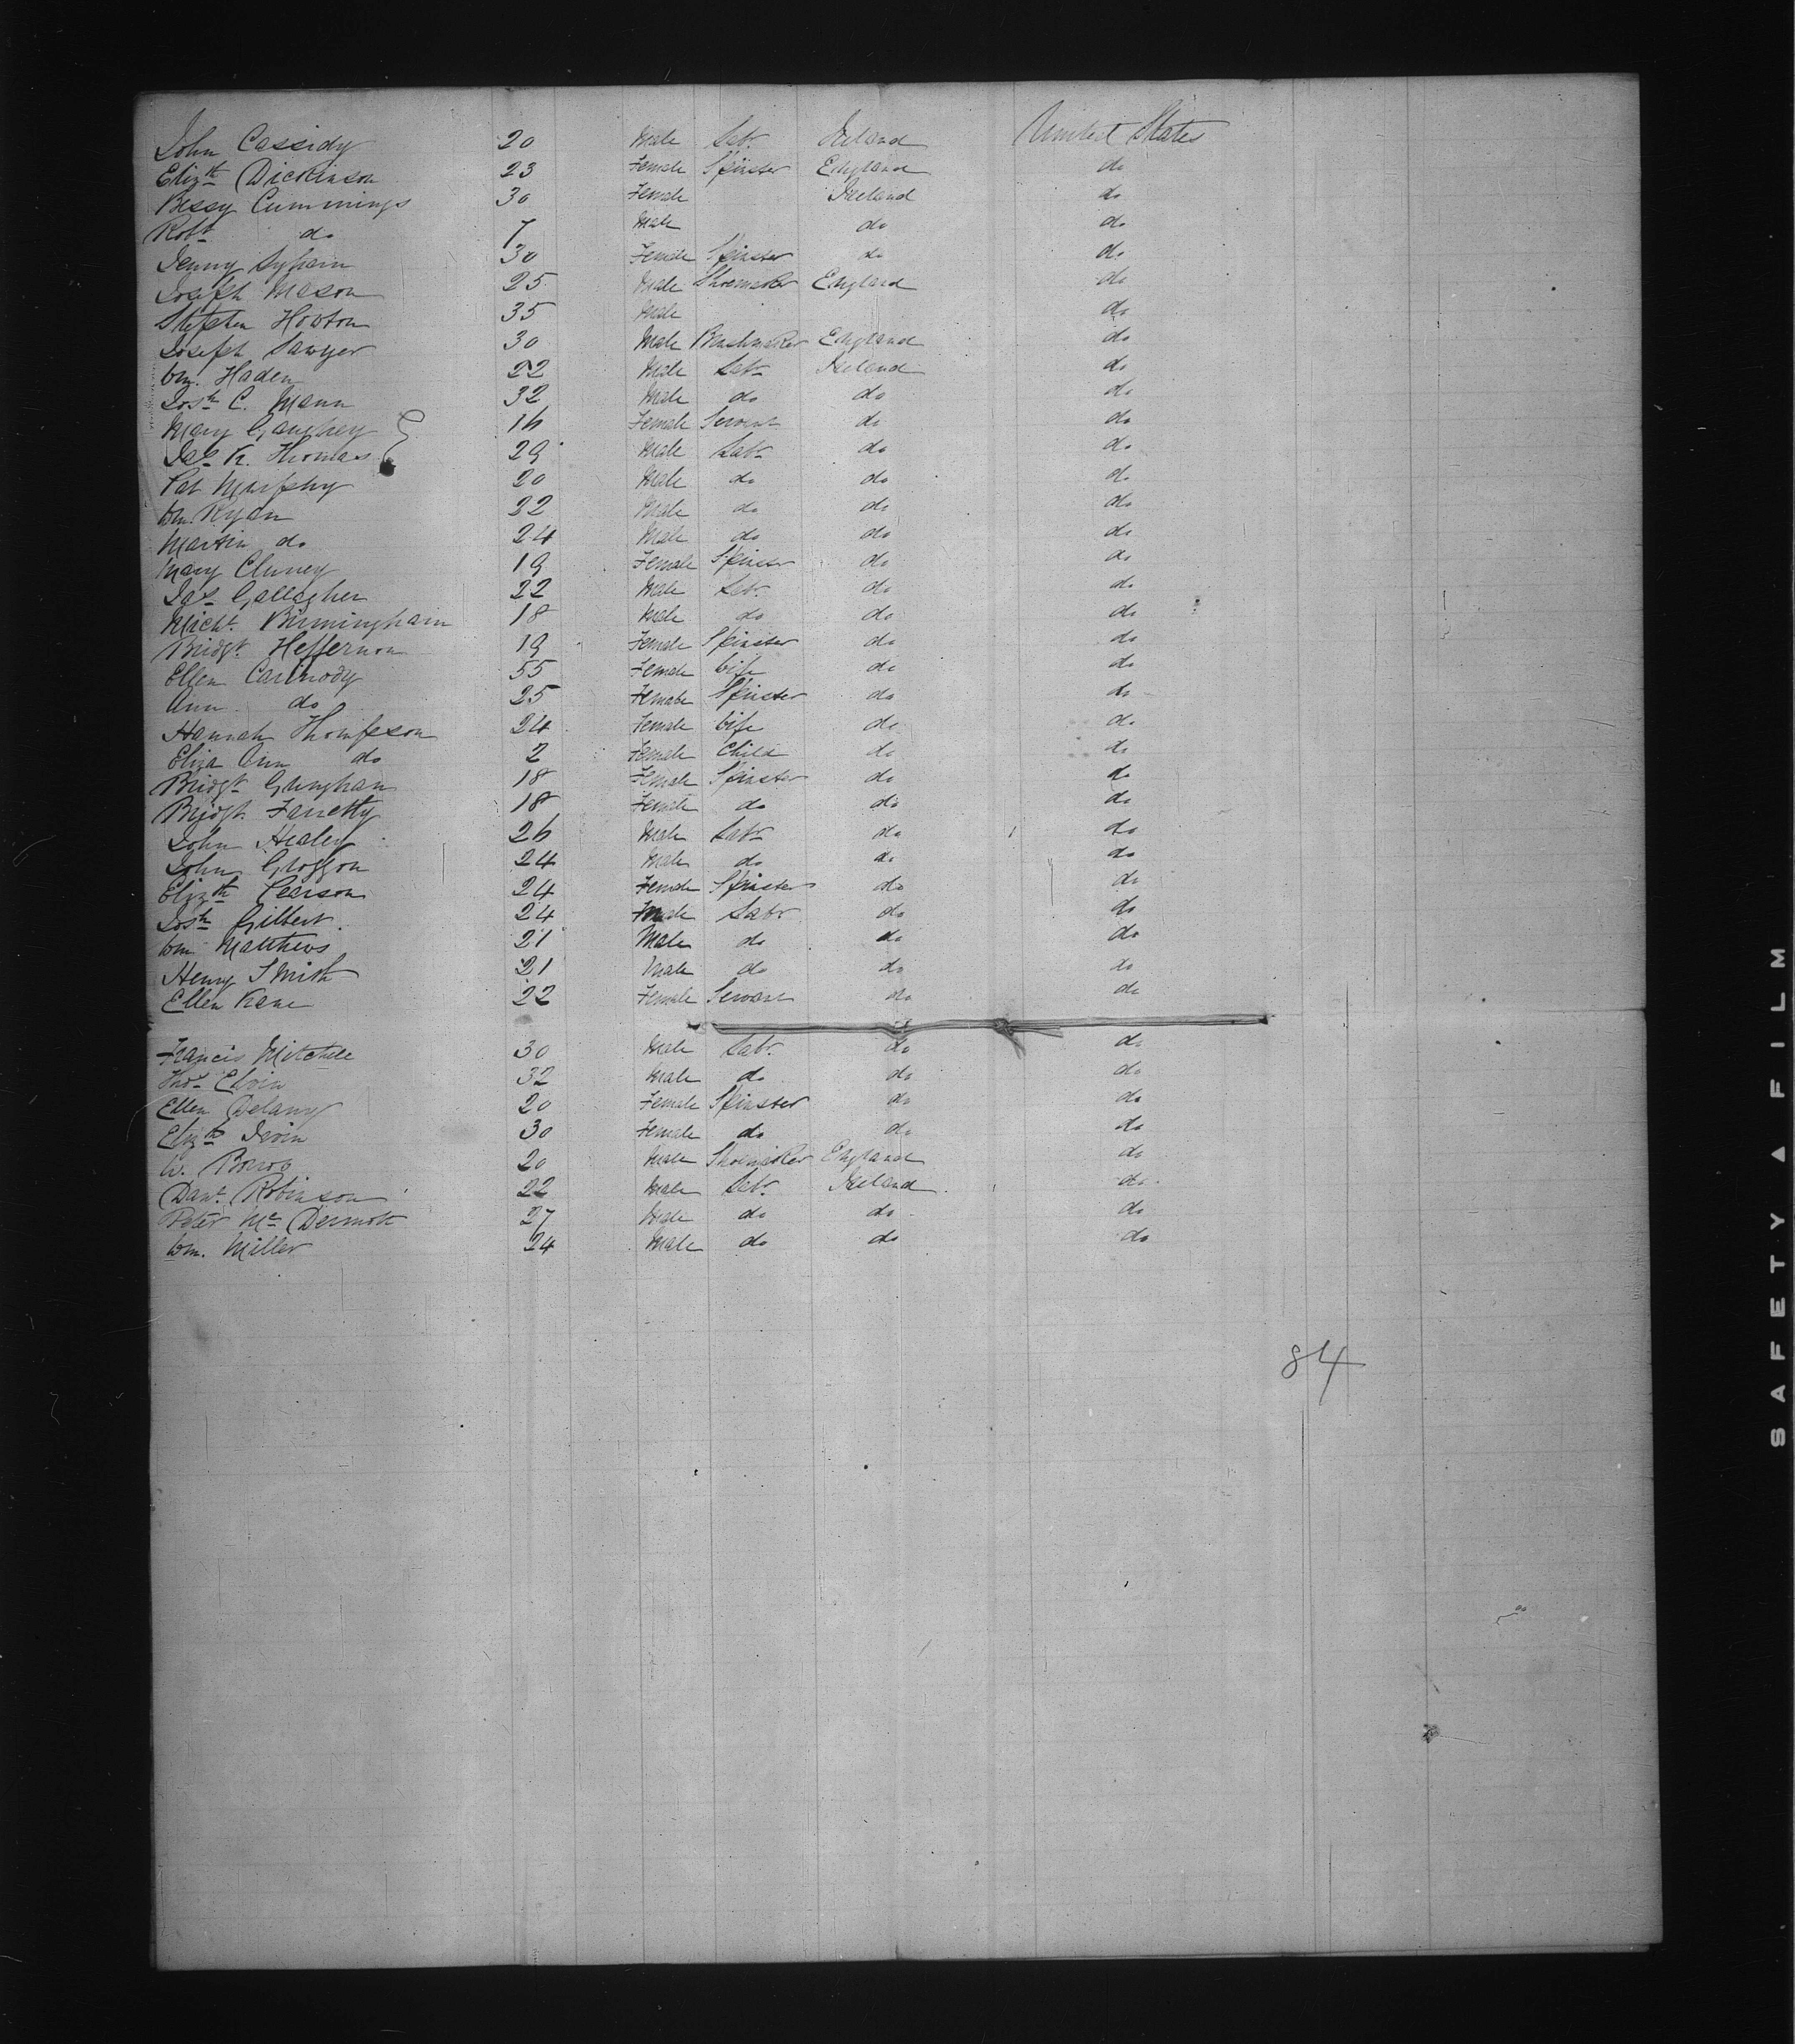 John Cassidy 20 Male Labr. Ireland United States
Elizth Dickinson 23 Female Spinster England do
Bessy Cummings 30 Female Ireland do
Robt do 7 Male do do
Jenny 30 Female Spinster do do
Joseph Mason 25 Male Shoemaker England do
Stephen Howton 35 Male do
Joseph Sawyer 30 Male Brushmaker England do
Wm. Haden 22 Male Labr Ireland do
Josh C. Mann 32 Male do do do
Mary Gaughey 16 Female Servant do do
Jas K. Thomas 29 Male Labr do do
Pat Murphy 20 Male do do do
Wm. Ryan 32 Male do do do
Martin do 24 Male do do do
Mary Cluney 19 Female Spinster do do
Jas Gallagher 22 Male Labr. do do
Michl. Birmingham 18 Male do do do
Bridgt. Heffernon 19 Female Spinster do do
Ellen Carmody 55 Female Wife do do
Ann do 25 Female Spinster do do
Hannah Thompson 24 Female Wife do do
Eliza Ann do 2 Female Child do do
Bridgt Gunghan 18 Female Spinster do do
Bridgt. 18 Female do do do
John Healey 26 Male Labr do do
John Groggon 24 Male do do do
Elizth Pearson 24 Female Spinster do do
Josh Gilbert. 24 Male Labr do do
Wm Matthews 21 Male do do do
Henry Smith 21 Male do do do
Ellen Kane 22 Female Servant do do
Francis Mitchell 30 Male Labr. do do
Thos Elvin 32 Male do do do
Ellen Delany 20 Female Spinster do do
Elizth Irvin 30 Female do do do
W. 20 Male Shoemaker England do
Danl. Robinson 22 Male Labr. Ireland do
Peter Mc Dermott 27 Male do do do
Wm. Miller 24 Male do do do
84
SAFETY ▲ FILM